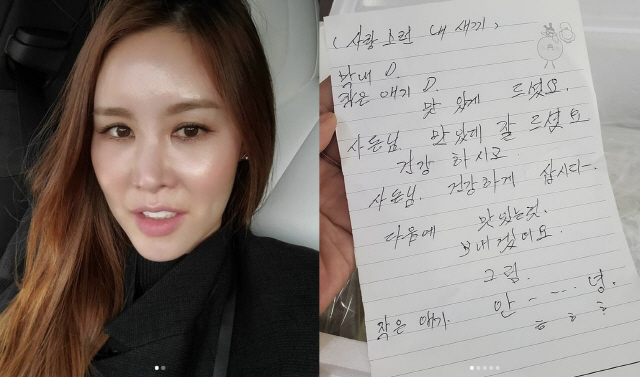 ( 사랑 스런 내 새끼 )
막내 0.
작은 애기 0.
맛 있게 드셧요.
사돈님. 맛있데 잘 드셧요
건강 하시고
사돈님. 건강하게 삽시다-.
다음에 맛있는것.
보내겠어요.
그럼.
안 - --- 녕.
작은 애기. ㅎ ㅎ ㅎ